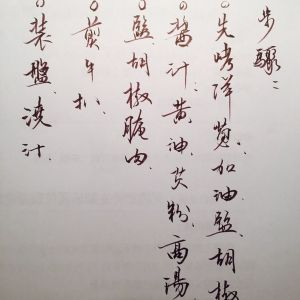 步驟：
○先烤洋蔥加油鹽胡椒
○醬汁：黄油芡粉高湯
○鹽胡椒腌肉
○煎牛扒
○裝盤澆汁